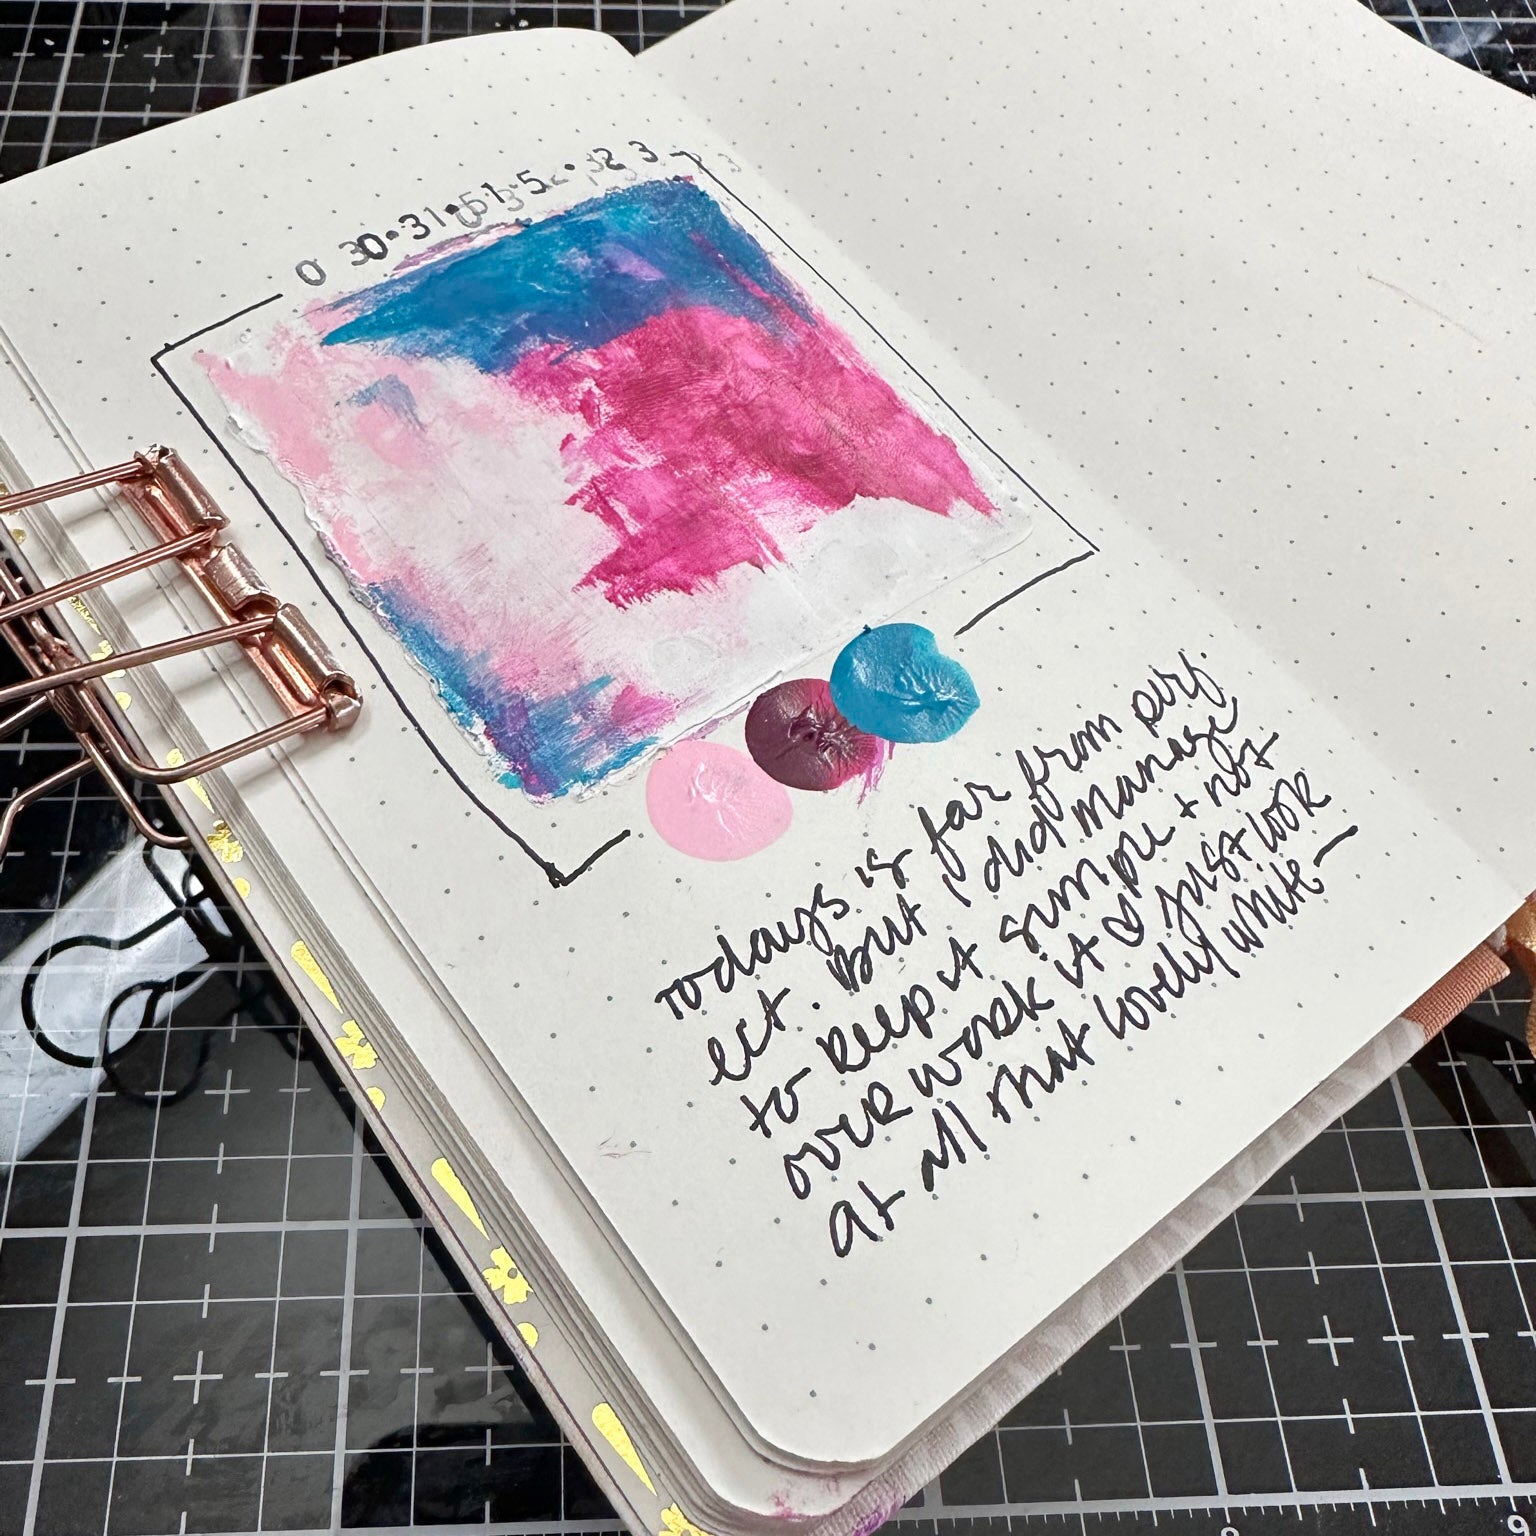 0 30•31•51•5
todays is far from perf.
ect. But i did manage
to keep it simple + not
over work it ♡ Just look
at all that lovely white—
9